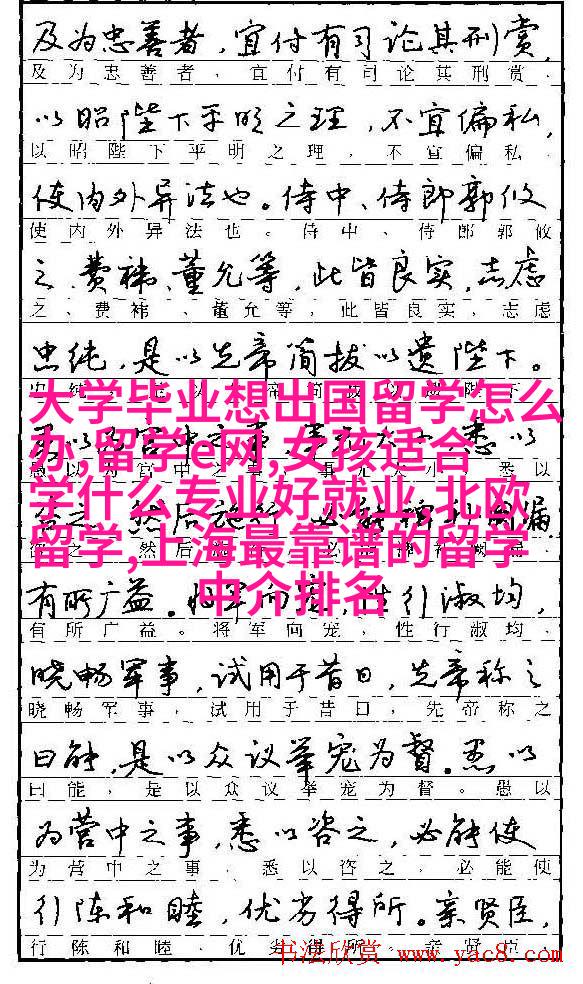 及为忠善者，宜付有司论其刑赏，
及为忠善者，宜付有司论其刑赏，
以昭陛下平明之理，不宜偏私，
以昭陛下平明之理，不宜偏私，
使内外异法也。侍中、侍郎郭攸
使内外异法也。侍中、侍郎郭攸
之、费祎、董允等，此皆良实，志虑
之、费祎、董允等，此皆良实，志虑
忠纯，是以先帝简拔以遗陛下。
大学毕业想出国留学怎么
办,留学e网,女孩适合
学什么专业好就业,北欧
留学,上海最靠谱的留学
中介排名
有所广益。将军向宠，性行淑均，
有所广益。将军向宠，性行淑均，
晓畅军事，试用于昔日，先帝称之
晓畅军事，试用于昔日，先帝称之
曰能，是以众议举宠为督。愚以
曰能，是以众议举宠为督。愚以
为营中之事，悉以咨之，必能使
为营中之事，悉以咨之，必能使
行陈和睦，优劣得所。亲贤臣，
行陈和睦，优劣得所。亲贤臣，
书法欣赏 www.yac8.com